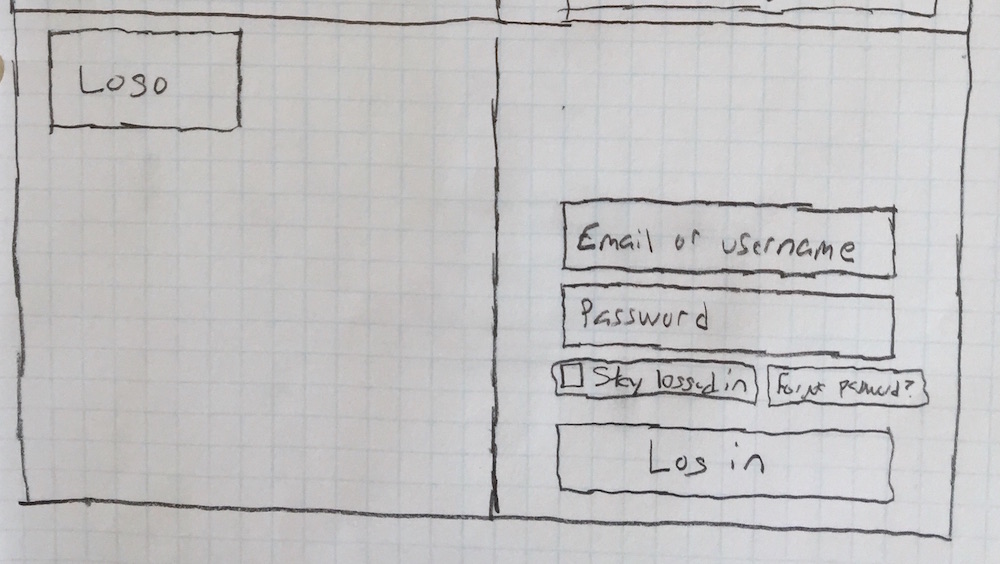 Logo
Email or username
Password
Stay logged in
Forgot password?
Log in